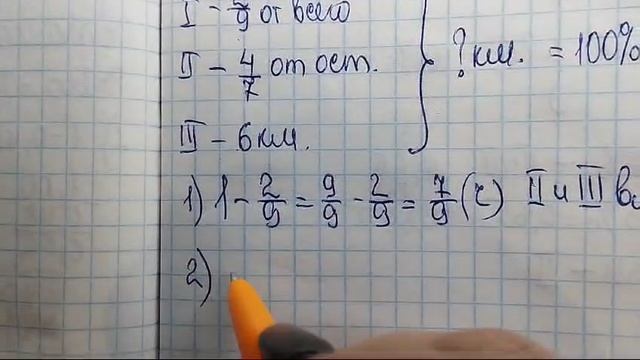 I - 2/9 от всего
II - 4/7 от ост.
III - 6 км.
? км. = 100%
1) 1 - 2/9 = 9/9 - 2/9 = 7/9 (ч) II и III
2)